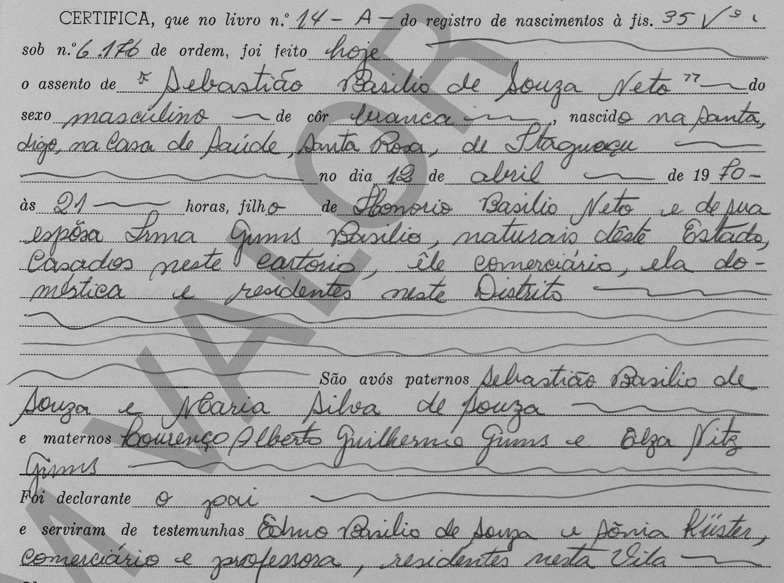 CERTIFICA, que no livro n.º 14 - A - do registro de nascimentos à fls. 35 Vº.
sob n.º 6.176 de ordem, foi feito hoje
o assento de "Sebastião Basilio de Souza Neto" do
sexo masculino de côr branca, nascido na Santa,
digo, na Casa de Saúde, Santa Rosa, de Itaguaçu
no dia 12 de abril de 1970-
às 21 horas, filho de Honorio Basilio Neto e de sua
espôsa Irma Gums Basilio, naturais dêste Estado,
Casados neste cartório, êle comerciário, ela do-
méstica e residentes neste Distrito
São avós paternos Sebastião Basilio de
Souza e Maria Silva de Souza
e maternos Lourenço Alberto Guilhermo Gums e Olza Nitz
Gums
Foi declarante o pai
e serviram de testemunhas Edmo Basilio de Souza e Sônia Küster,
comerciário e professora, residentes nesta Vila
M VALOR